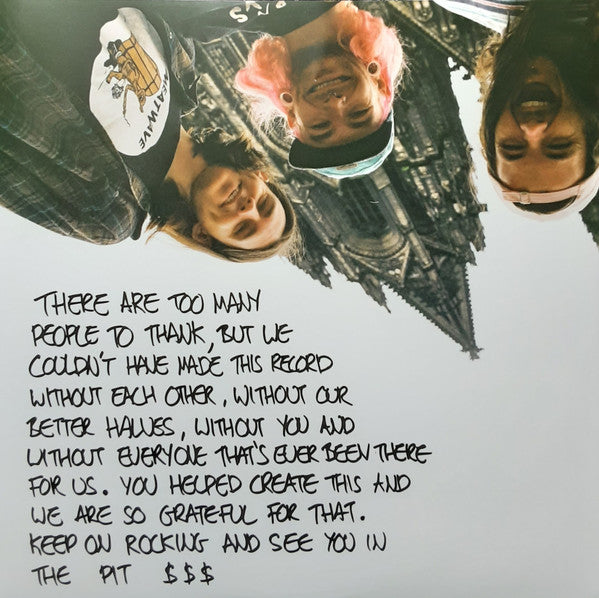 HEATWAVE
THERE ARE TOO MANY
PEOPLE TO THANK, BUT WE
COULDN'T HAVE MADE THIS RECORD
WITHOUT EACH OTHER, WITHOUT OUR
BETTER HALVES, WITHOUT YOU AND
WITHOUT EVERYONE THAT'S EVER BEEN THERE
FOR US. YOU HELPED CREATE THIS AND
WE ARE SO GRATEFUL FOR THAT.
KEEP ON ROCKING AND SEE YOU IN
THE PIT $$$